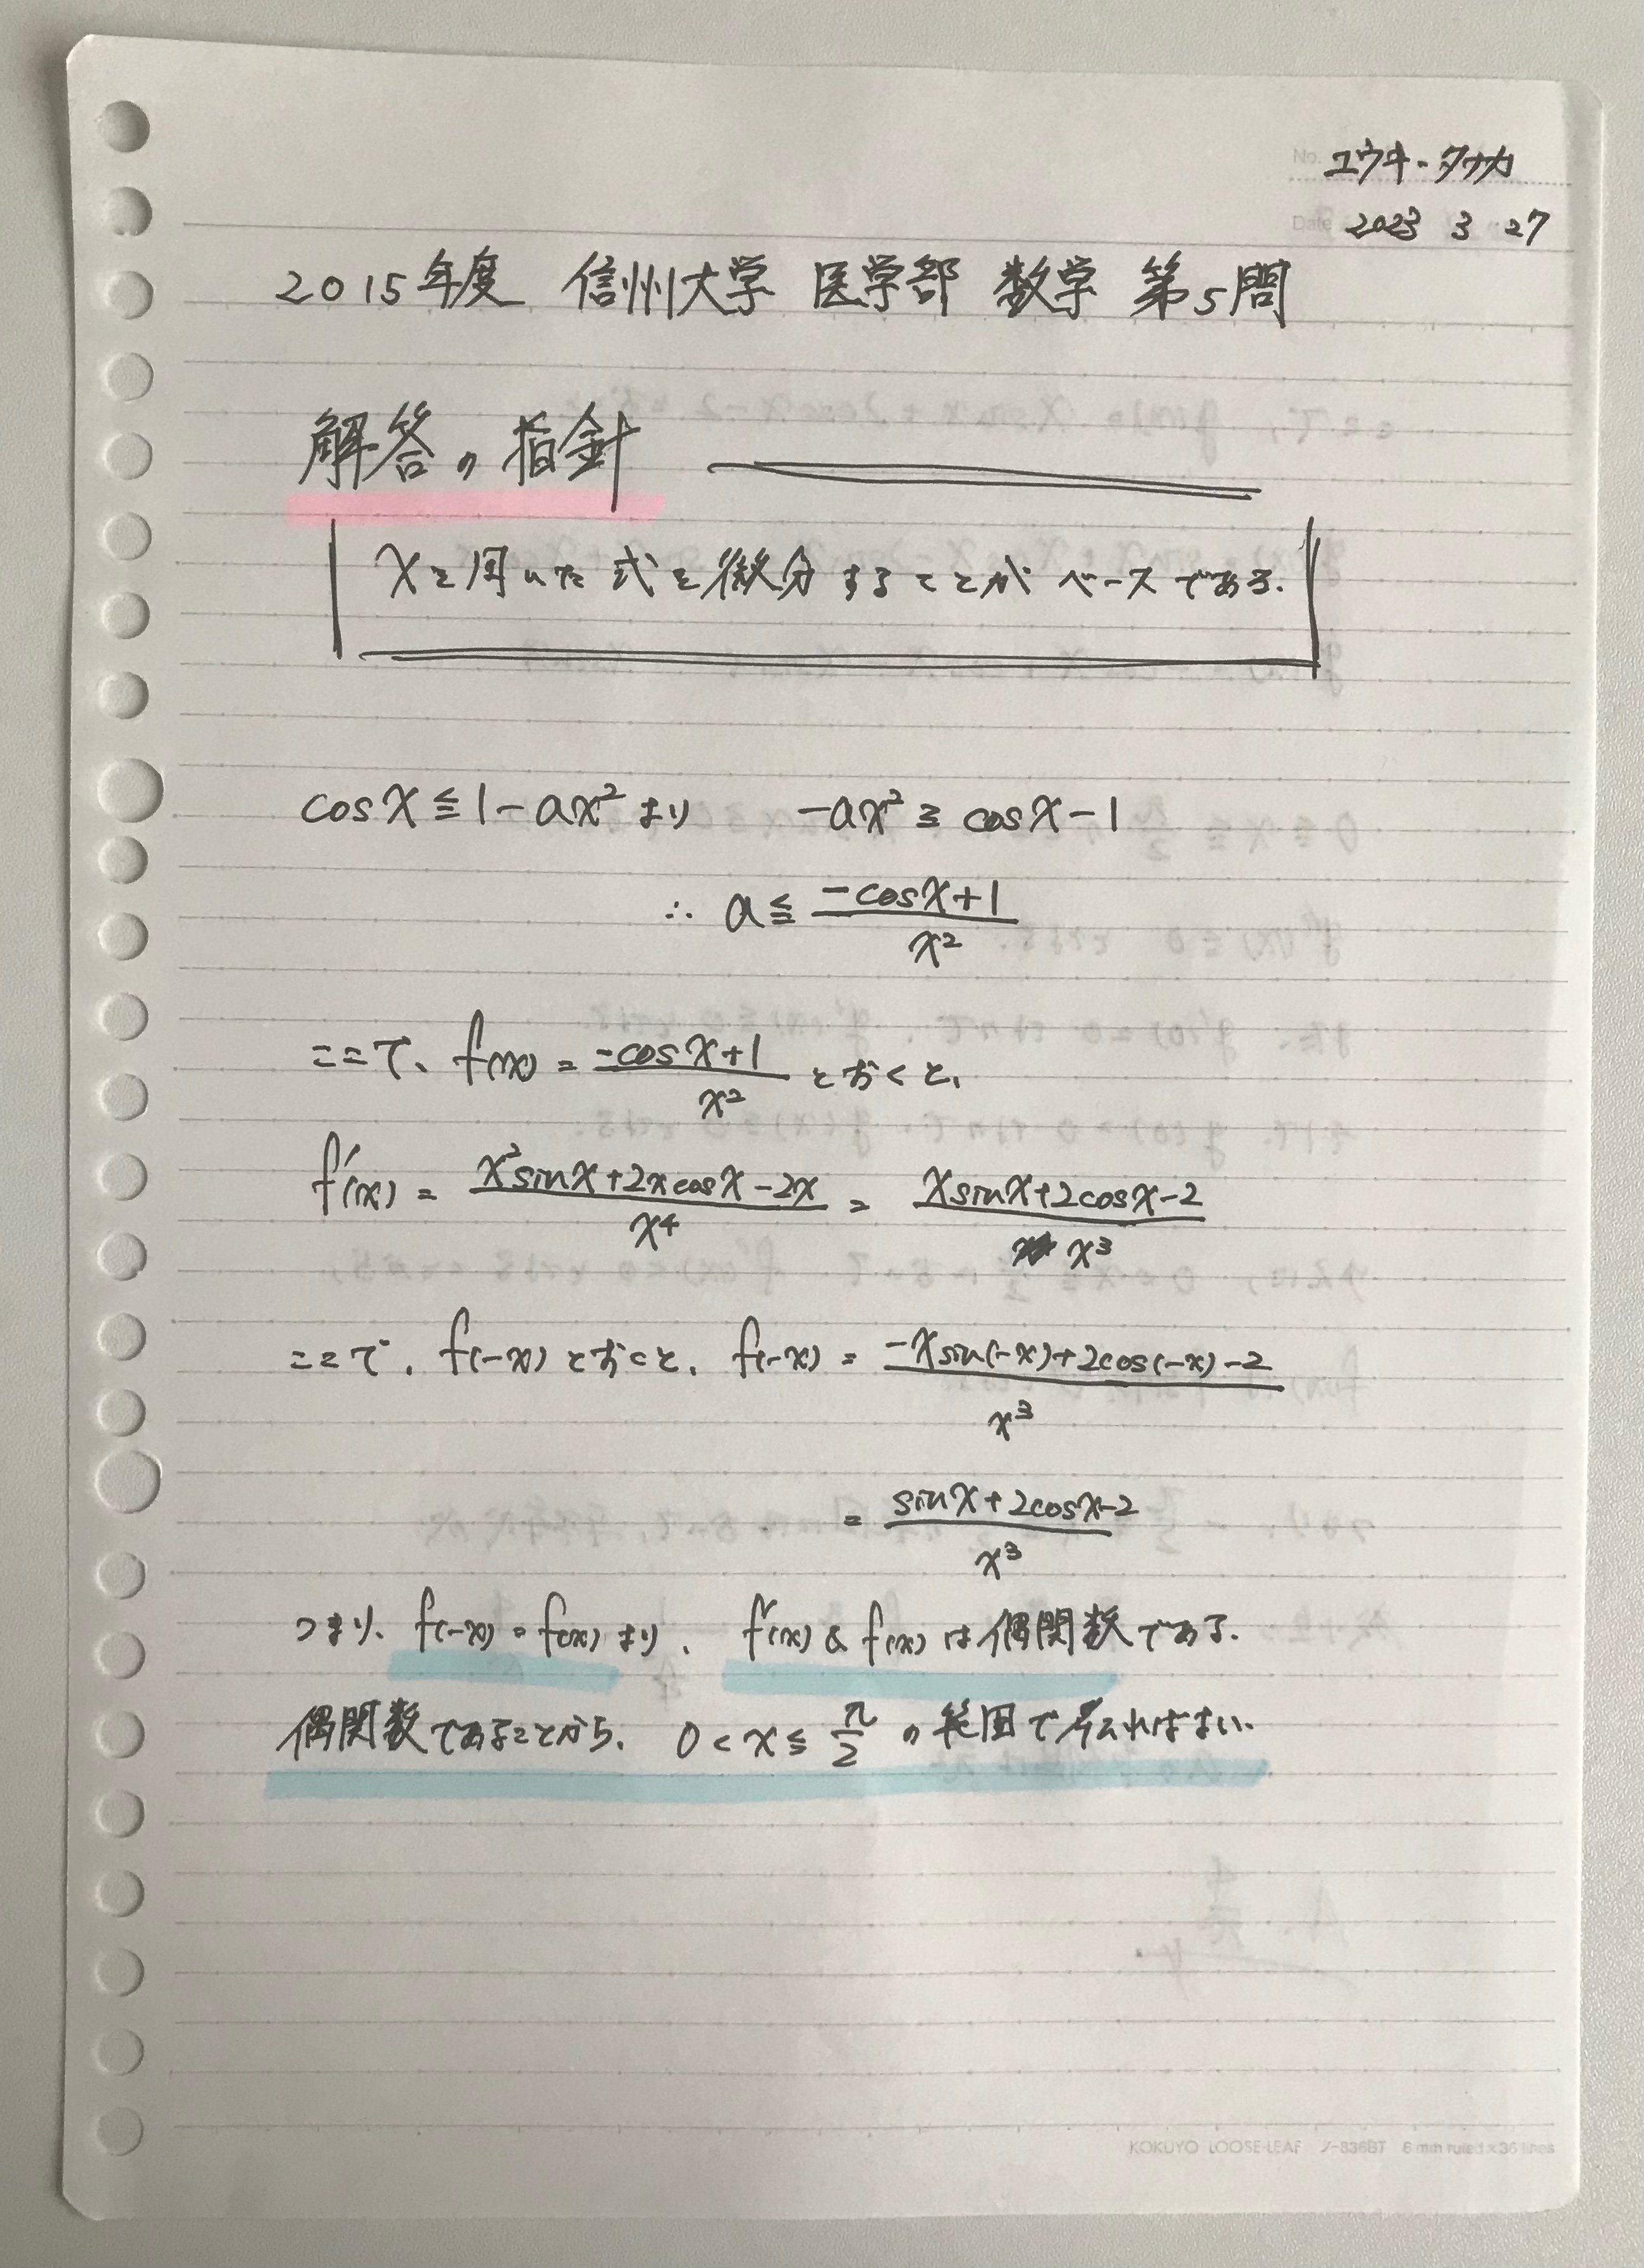 No. ユウキ・タナカ
Date 2023 3 27
2015年度 信州大学 医学部 数学 第5問
解答の指針
xを用いた式を微分することがベースである.
cosx≦1-ax² より -ax²≧cosx-1
∴ a≦(-cosx+1)/x²
ここで、f(x)=(-cosx+1)/x² とおくと、
f'(x)=(x²sinx+2xcosx-2x)/x⁴=(xsinx+2cosx-2)/x³
ここで、f(-x)とおくと、f(-x)=(-xsin(-x)+2cos(-x)-2)/x³
=(sinx+2cosx-2)/x³
つまり、f(-x)=f(x)より、f'(x)&f(x)は偶関数である.
偶関数であることから、0<x≦π/2の範囲で考えればよい.
KOKUYO LOOSE-LEAF ノ-836BT 6 mm ruled×36 lines